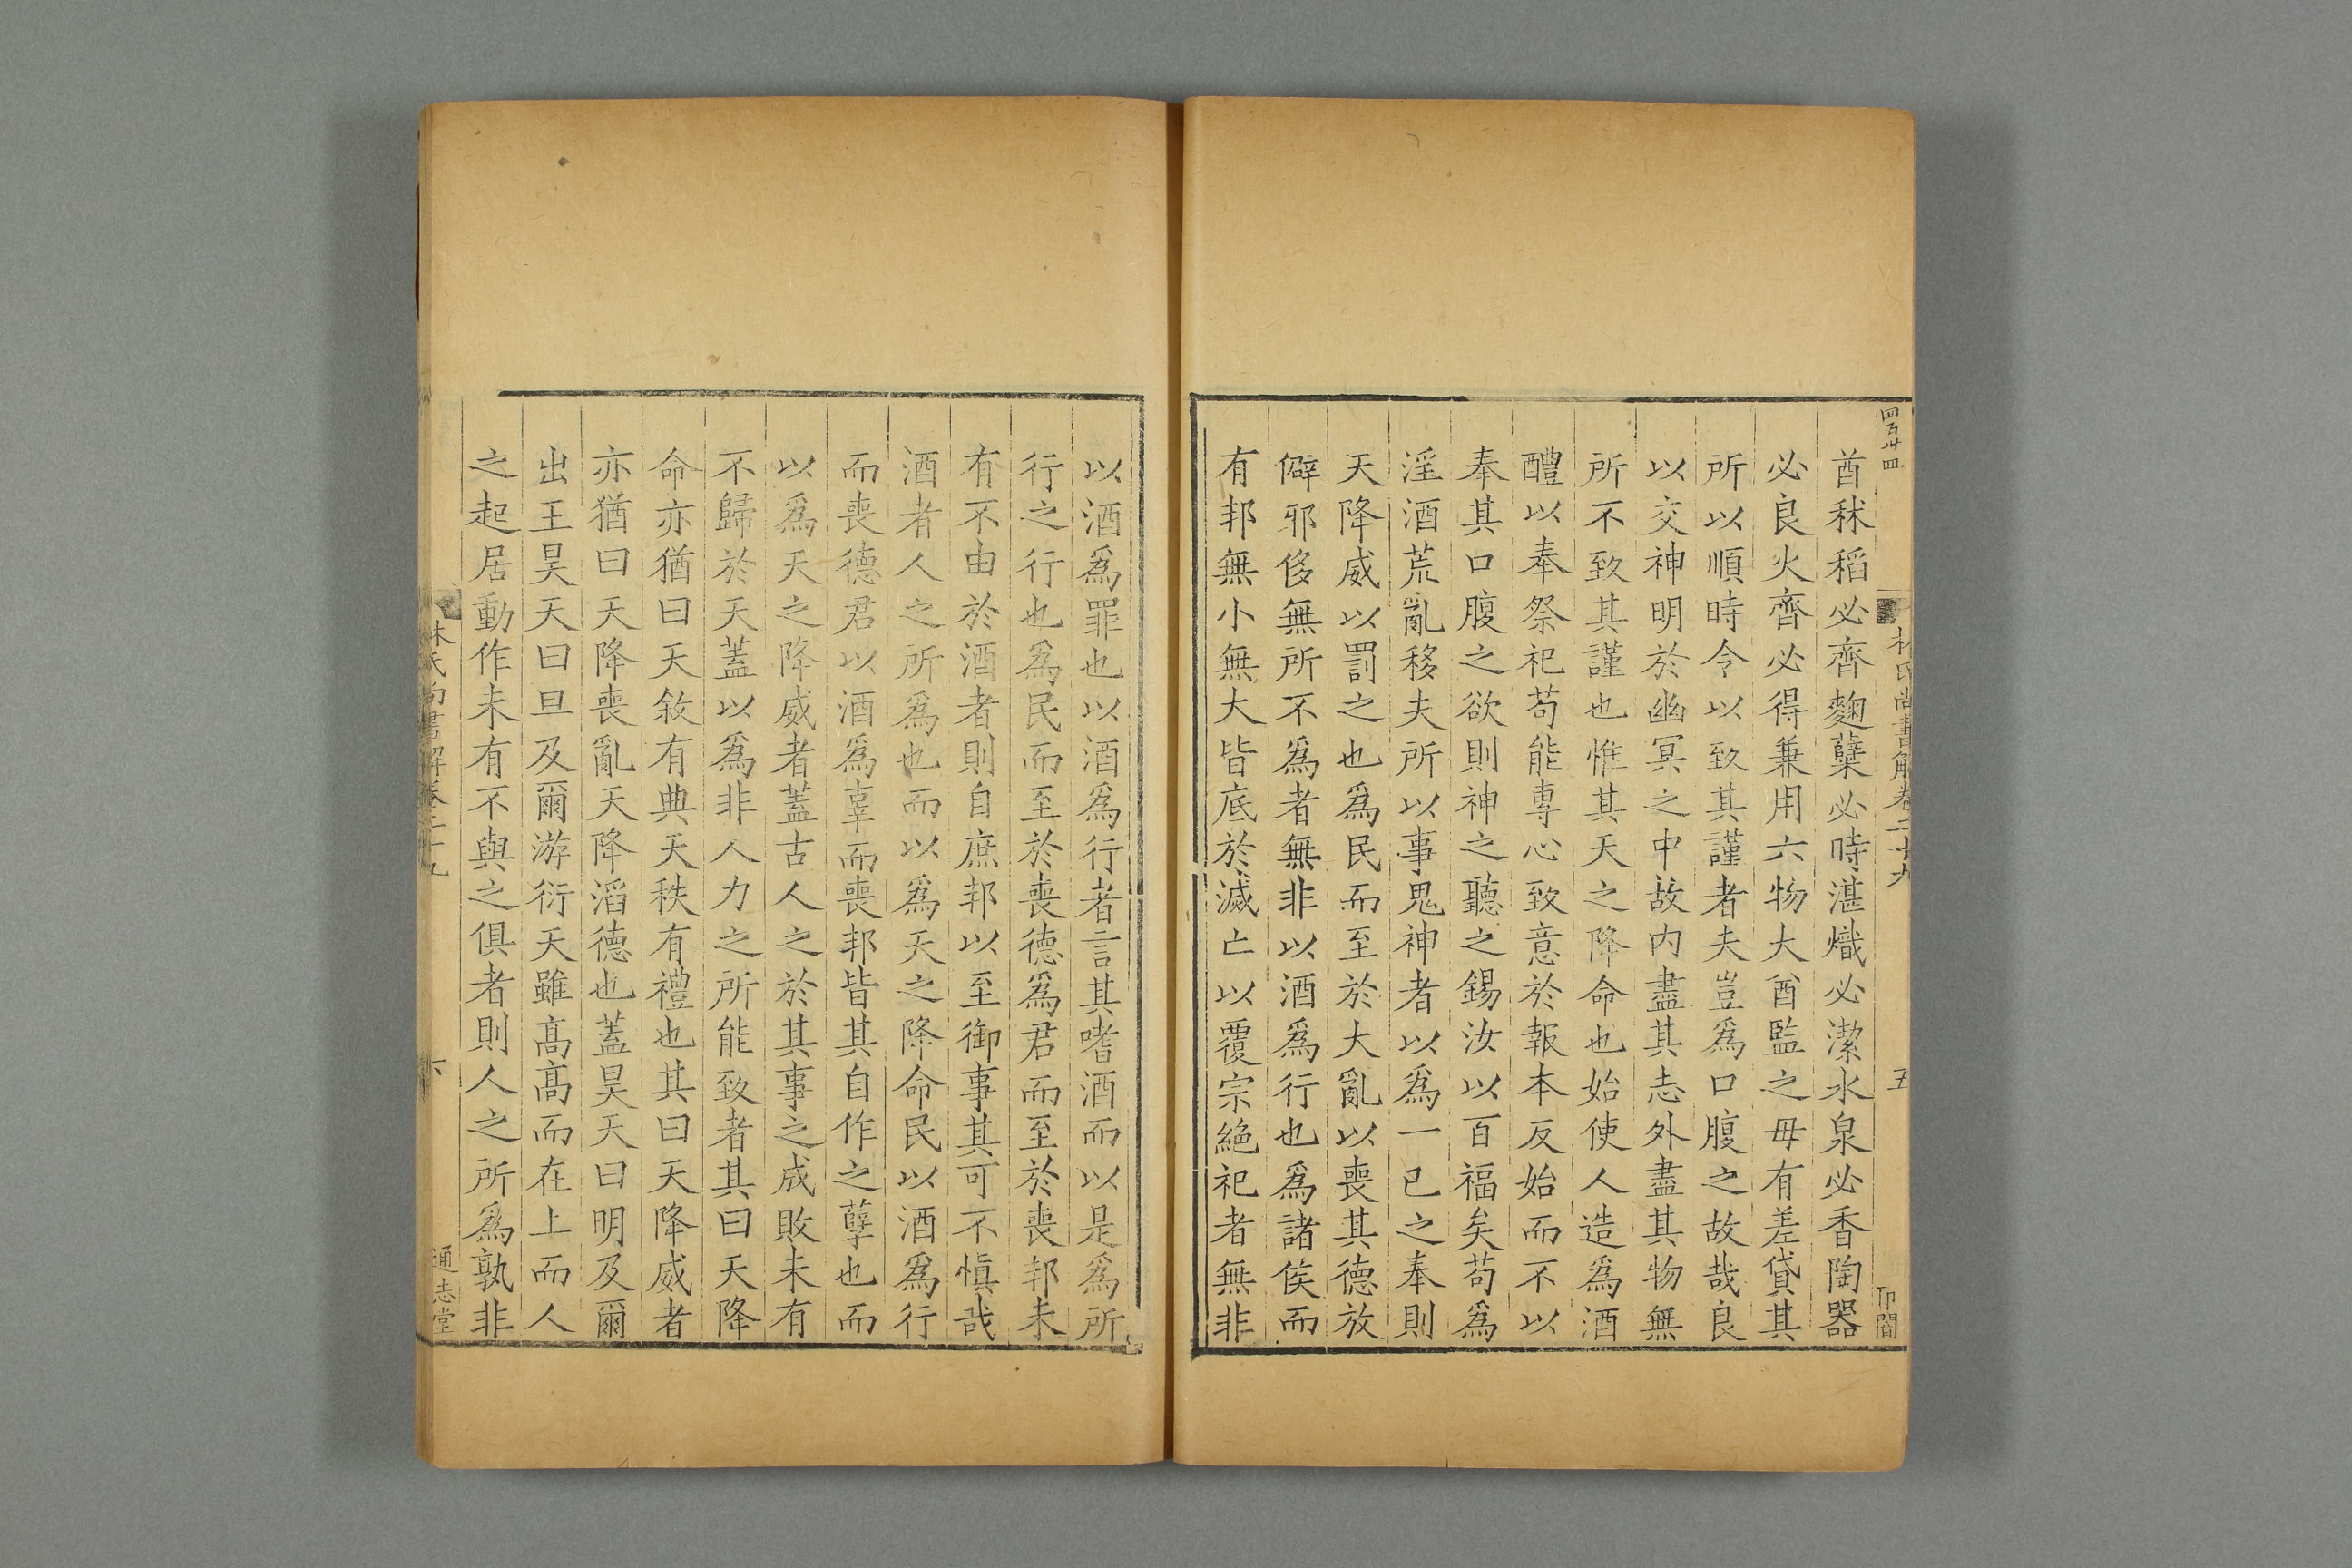 四百廿四
林氏尚書解卷二十九
五
酋秫稻必齊麴蘖必時湛熾必潔水泉必香陶器
必良火齊必得兼用六物大酋監之毋有差貸其
所以順時令以致其謹者夫豈爲口腹之故哉良
以交神明於幽冥之中故内盡其志外盡其物無
所不致其謹也惟其天之降命也始使人造爲酒
醴以奉祭祀苟能專心致意於報本反始而不以
奉其口腹之欲則神之聽之錫汝以百福矣苟爲
淫酒荒亂移夫所以事鬼神者以爲一已之奉則
天降威以罰之也爲民而至於大亂以喪其德放
僻邪侈無所不爲者無非以酒爲行也爲諸侯而
有邦無小無大皆底於滅亡以覆宗絶祀者無非
以酒爲罪也以酒爲行者言其嗜酒而以是爲所
行之行也爲民而至於喪德爲君而至於喪邦未
有不由於酒者則自庶邦以至御事其可不愼哉
酒者人之所爲也而以爲天之降命民以酒爲行
而喪德君以酒爲辜而喪邦皆其自作之孽也而
以爲天之降威者蓋古人之於其事之成敗未有
不歸於天蓋以爲非人力之所能致者其曰天降
命亦猶曰天敘有典天秩有禮也其曰天降威者
亦猶曰天降喪亂天降滔德也蓋昊天曰明及爾
出王昊天曰旦及爾游衍天雖高高而在上而人
之起居動作未有不與之俱者則人之所爲孰非
林氏尚書解卷二十九
六
通志堂